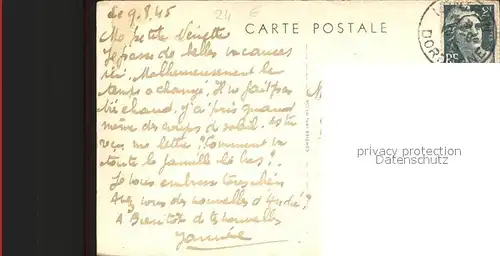 Le 9.8.45
24 €
CARTE POSTALE
Ma petite
Je passe de belles vacances
ici. Malheureusement le
temps a changé. Il ne fait pas
très chaud. J'ai pris quand
même des coups de soleil. As tu
reçu ma lettre? Comment va
toute la famille
Je vous embrasse tous
Avez vous des nouvelles d'André?
A Bientôt de tes nouvelles
DOR
privacy protection
Datenschutz